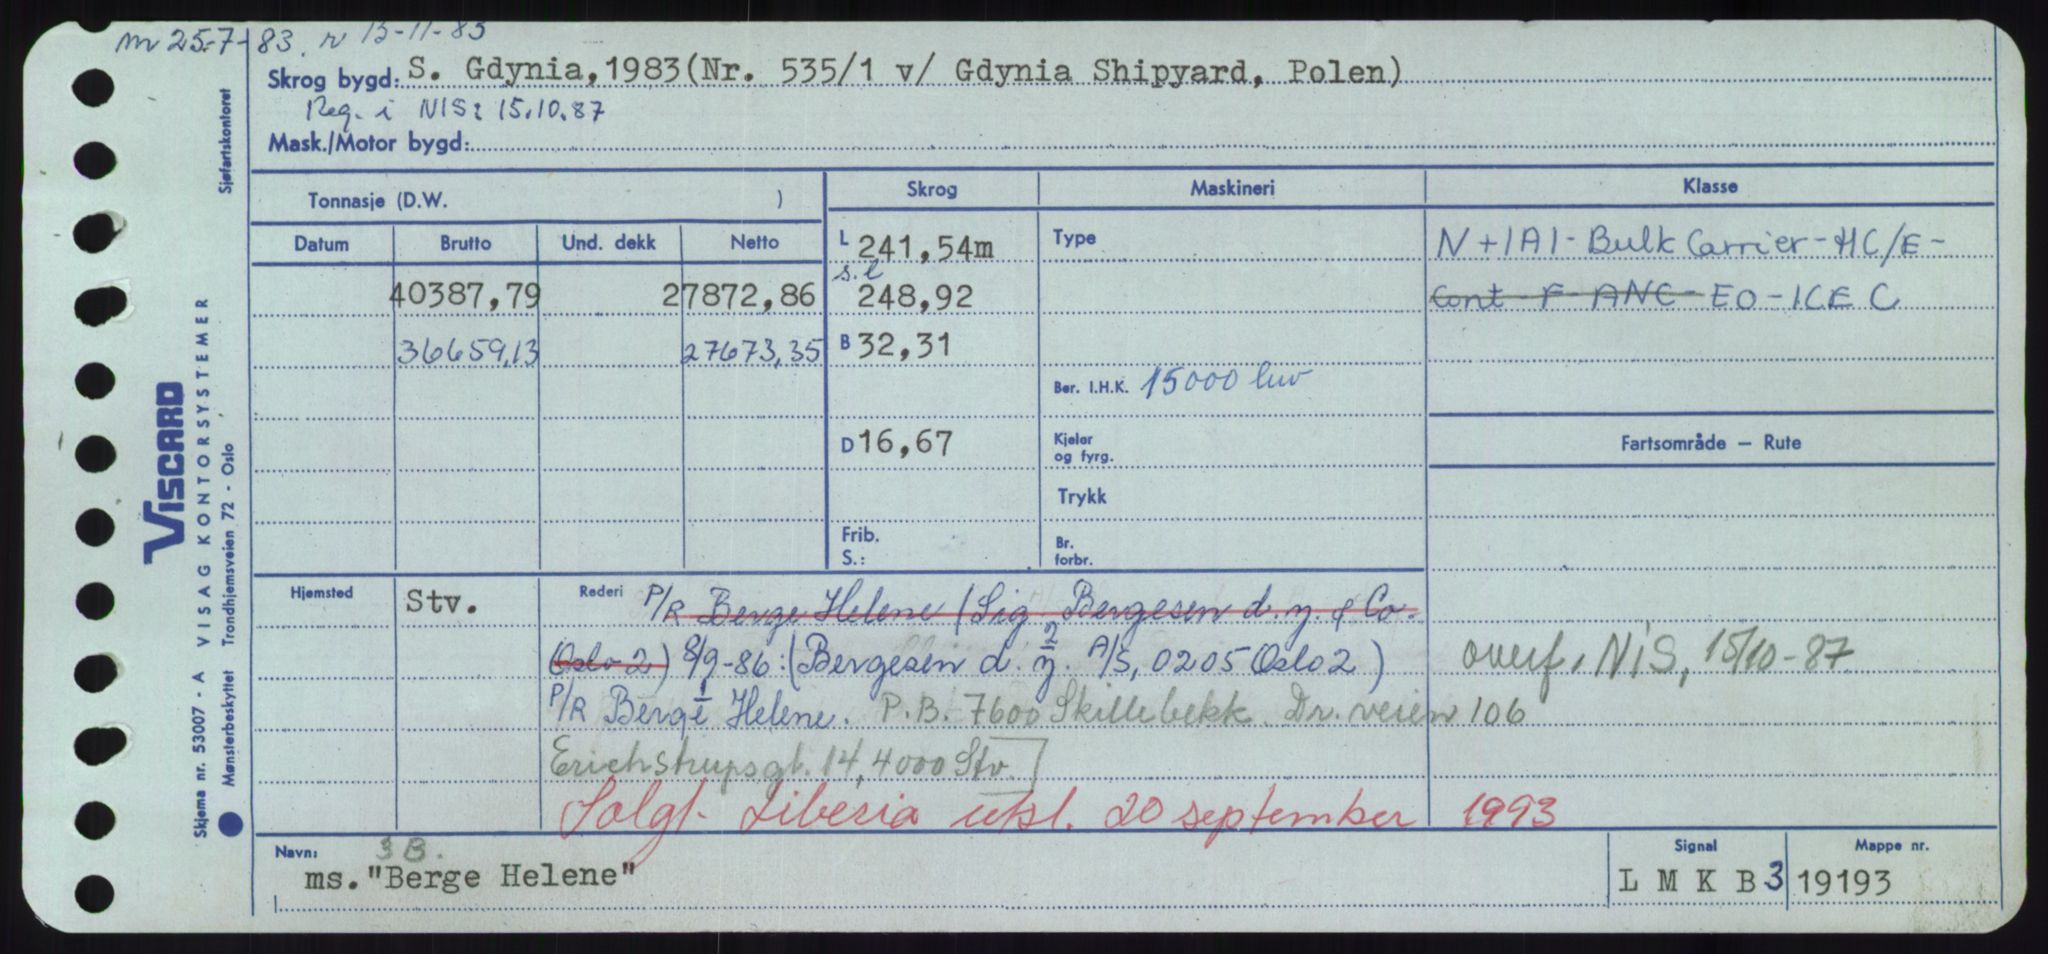 m 25-7-83. r 15-11-83
Skrog bygd: S. Gdynia, 1983 (Nr. 535/1 v/ Gdynia Shipyard, Polen)
Reg. i NIS: 15.10.87
Mask./Motor bygd:
Tonnasje (D.W. )
Skrog
Maskineri
Klasse
Datum Brutto Und. dekk Netto
L 241,54m
Type
N+1A1-Bulk Carrier-HC/E-
s.l
40387,79 27872,86
248,92
Cont F ANC-EO-ICE C
36659,13 27673,35
B 32,31
Ber. I.H.K. 15000
D 16,67
Kjeler
og fyrg.
Fartsområde — Rute
Trykk
Frib.
S.:
Br.
forbr.
Hjemsted Stv.
Rederi P/R Berge Helene (Sig. Bergesen d.y. & Co
Oslo 2) 8/9-86: (Bergesen d.y. A/S, 0205 Oslo 2)
2
overf. NIS, 15/10-87
1
P/R Berge Helene. P.B. 7600 Skillebekk Dr.veien 106
Erichstrupsgt. 14, 4000 Stv.
Solgt Liberia utsl. 20 september 1993
Navn: 3B.
ms. "Berge Helene"
Signal
L M K B 3
Mappe nr.
19193
Sjøfartskontoret
VISCARD
VISAG KONTORSYSTEMER
Skjema nr. 53007 - A
Mønsterbeskyttet Trondhjemsveien 72 - Oslo